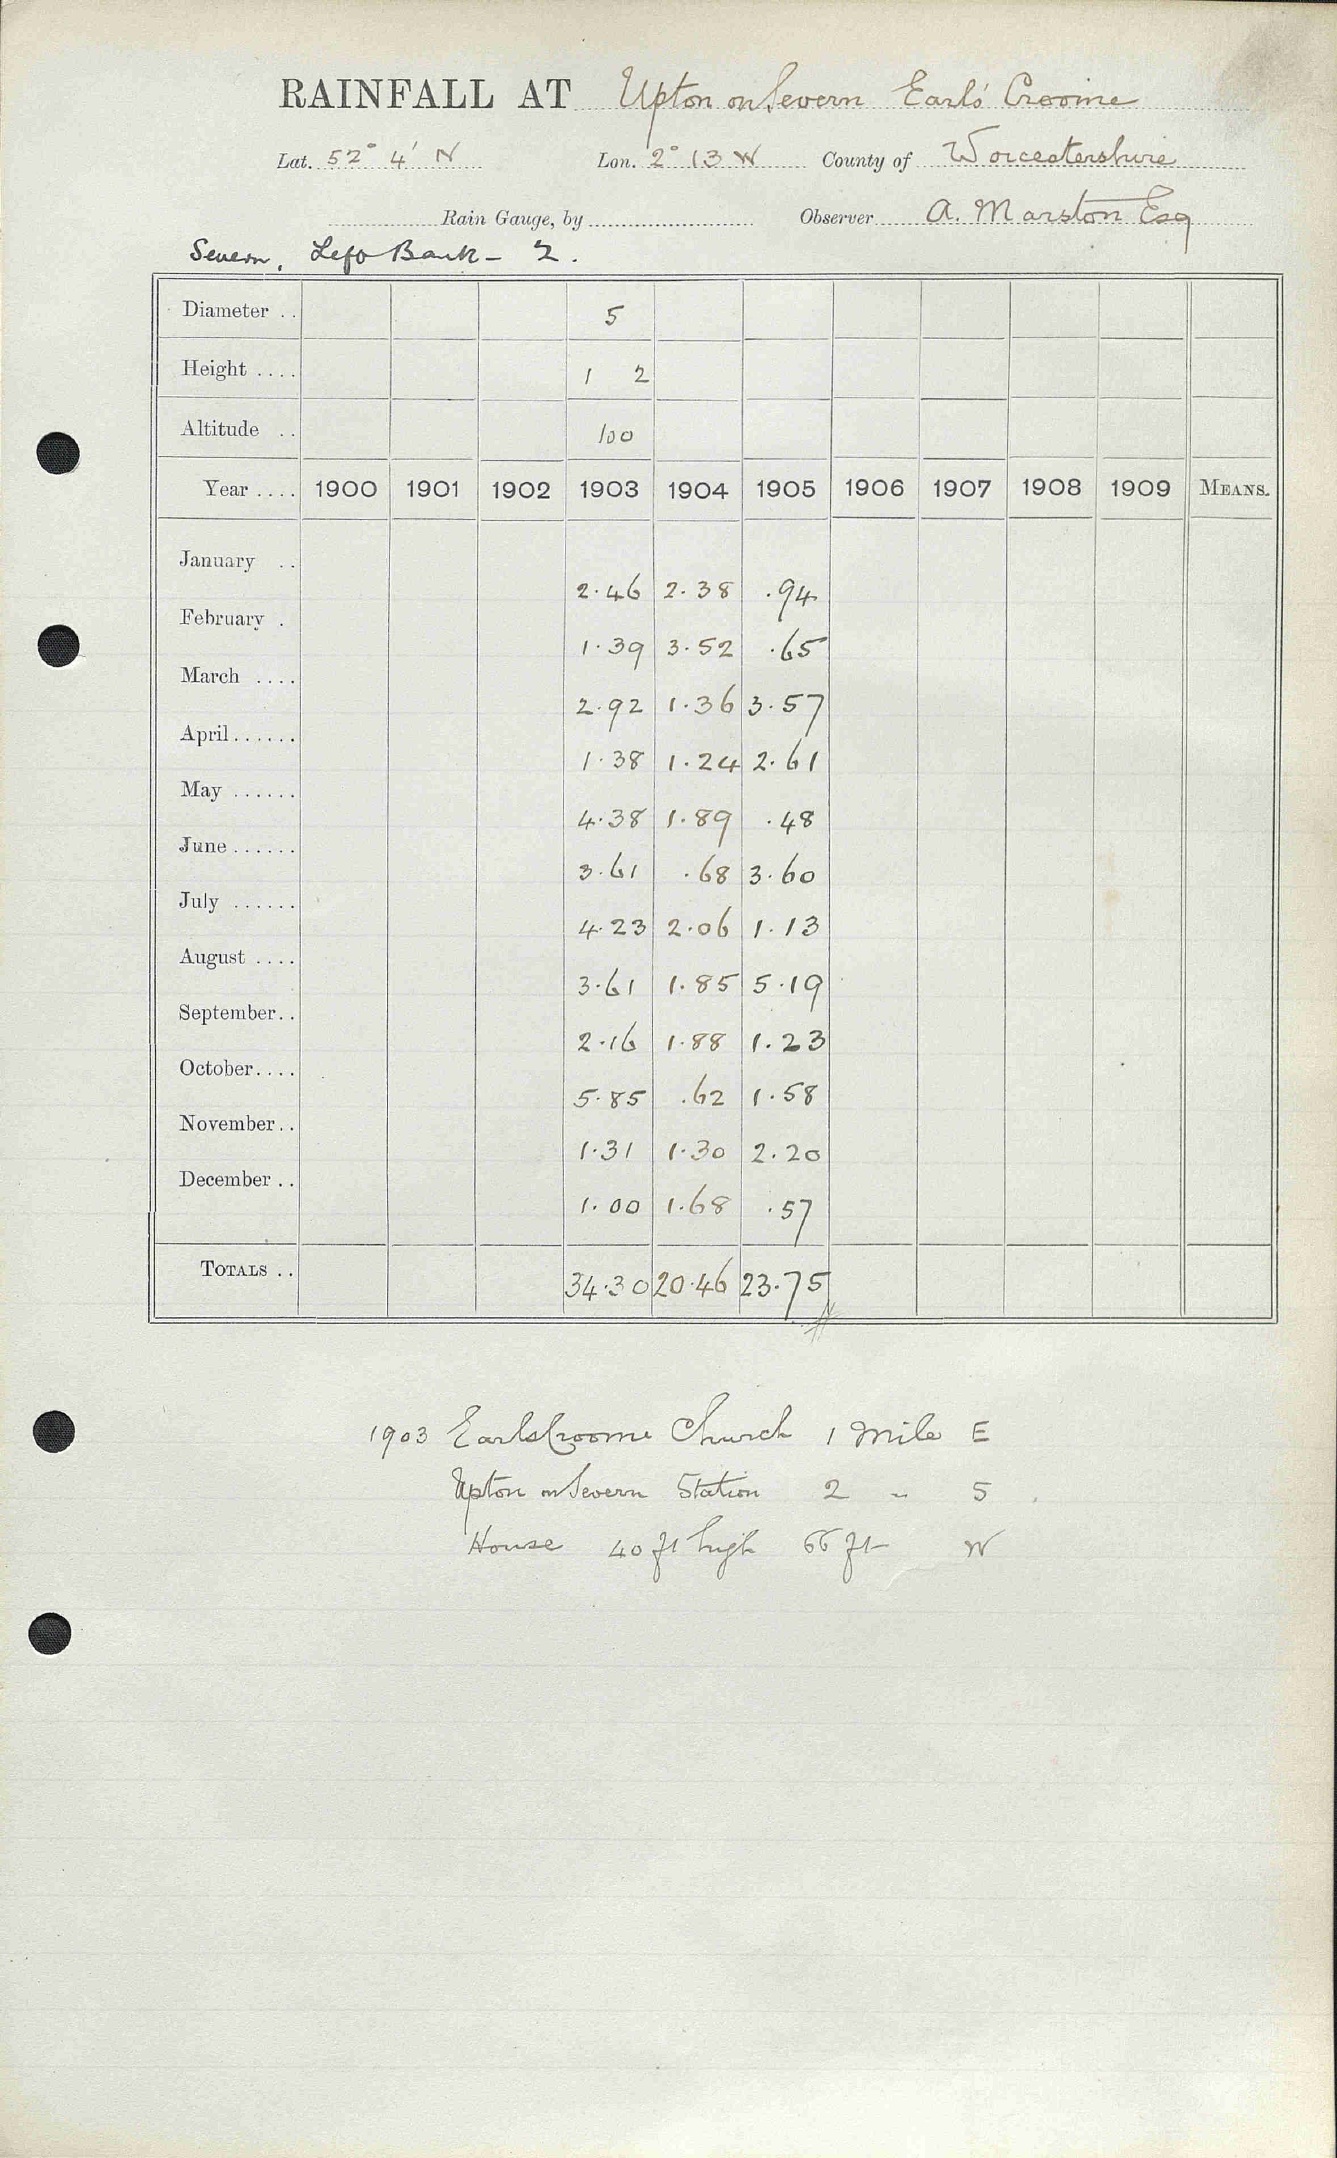 RAINFALL AT Upton on Severn Earls' Croome
Lat. 52° 4' N Lon. 2° 13 W County of Worcestershire
Rain Gauge, by Observer A. Marston Esq
Severn, Left Bank - 2.
Diameter .. 5
Height .... 1 2
Altitude .. 100
Year .... 1900 1901 1902 1903 1904 1905 1906 1907 1908 1909 MEANS.
January .. 2.46 2.38 .94
February . 1.39 3.52 .65
March .... 2.92 1.36 3.57
April ...... 1.38 1.24 2.61
May ...... 4.38 1.89 .48
June ...... 3.61 .68 3.60
July ...... 4.23 2.06 1.13
August .... 3.61 1.85 5.19
September .. 2.16 1.88 1.23
October .... 5.85 .62 1.58
November .. 1.31 1.30 2.20
December .. 1.00 1.68 .57
TOTALS .. 34.30 20.46 23.75
1903 Earls Croome Church 1 Mile E
Upton on Severn Station 2 " S
House 40 ft high 66 ft W